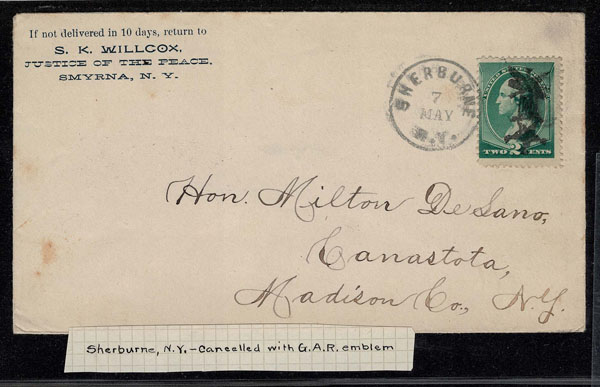 If not delivered in 10 days, return to
S. K. WILLCOX,
JUSTICE OF THE PEACE,
SMYRNA, N. Y.
SHERBURNE
7
MAY
N.Y.
TWO 2 CENTS
Hon. Milton DeLano,
Canastota,
Madison Co., N.Y.
Sherburne, N.Y.-Cancelled with G.A.R. emblem